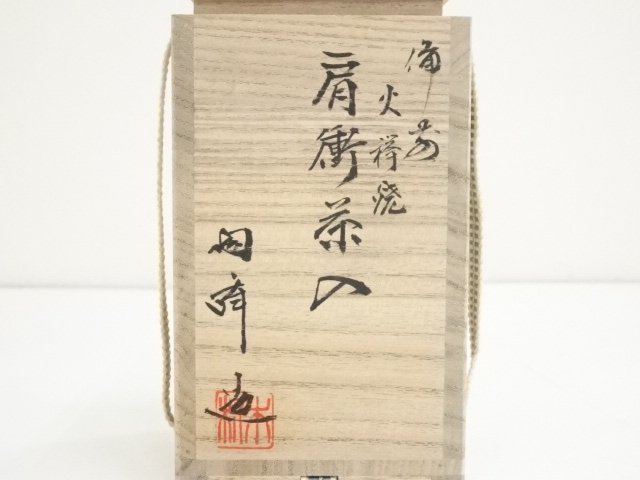 備前
火襷焼
肩衝茶入
造